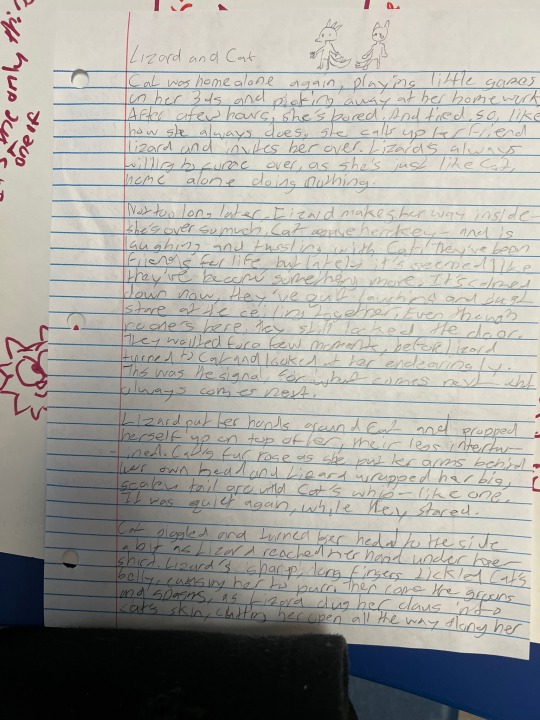 Lizard and Cat
Cat was home alone again, playing little games
on her 3ds and picking away at her homework
After a few hours, she's bored. And tired, so, like
how she always does, she calls up her friend
lizard and invites her over. Lizards always
willing to come over, as she's just like Cat,
home alone doing nothing.
Not too long later, Lizard makes her way inside-
she's over so much, Cat gave her key - and is
laughing and tussling with Cat. They've been
friends for life but lately it's seemed like
they've become something more. It's calmed
down now, they've quit laughing and just
stare at the ceiling together. Even though
no one's here, they still locked the door.
They waited for a few moments, before lizard
turned to Cat and looked at her endearingly.
This was the signal for what comes next. what
always comes next.
Lizard put her hands around Cat and propped
herself up on top of her, their legs intertwi-
ned. Cat's fur rose as she put her arms behind
her own head and Lizard wrapped her big,
scaley tail around Cat's whip-like one.
It was quiet again, while they stared.
Cat giggled and turned her head to the side
a bit as Lizard reached her hand under her
shirt. Lizard's sharp, long fingers tickled Cat's
belly, causing her to purr. then came the groans
and spasms, as Lizard dug her claws into
Cat's skin, cutting her open all the way along her
only thi